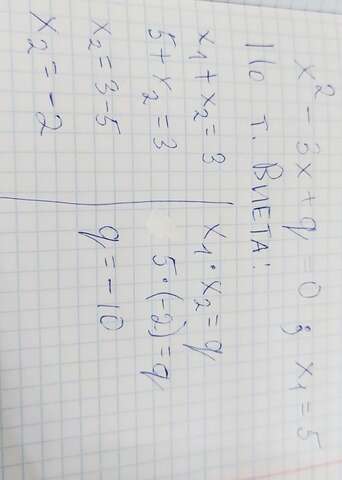 x² - 3x + q = 0 ; x₁ = 5
По т. Виета:
x₁ + x₂ = 3
5 + x₂ = 3
x₂ = 3 - 5
x₂ = -2
x₁ · x₂ = q
5 · (-2) = q
q = -10